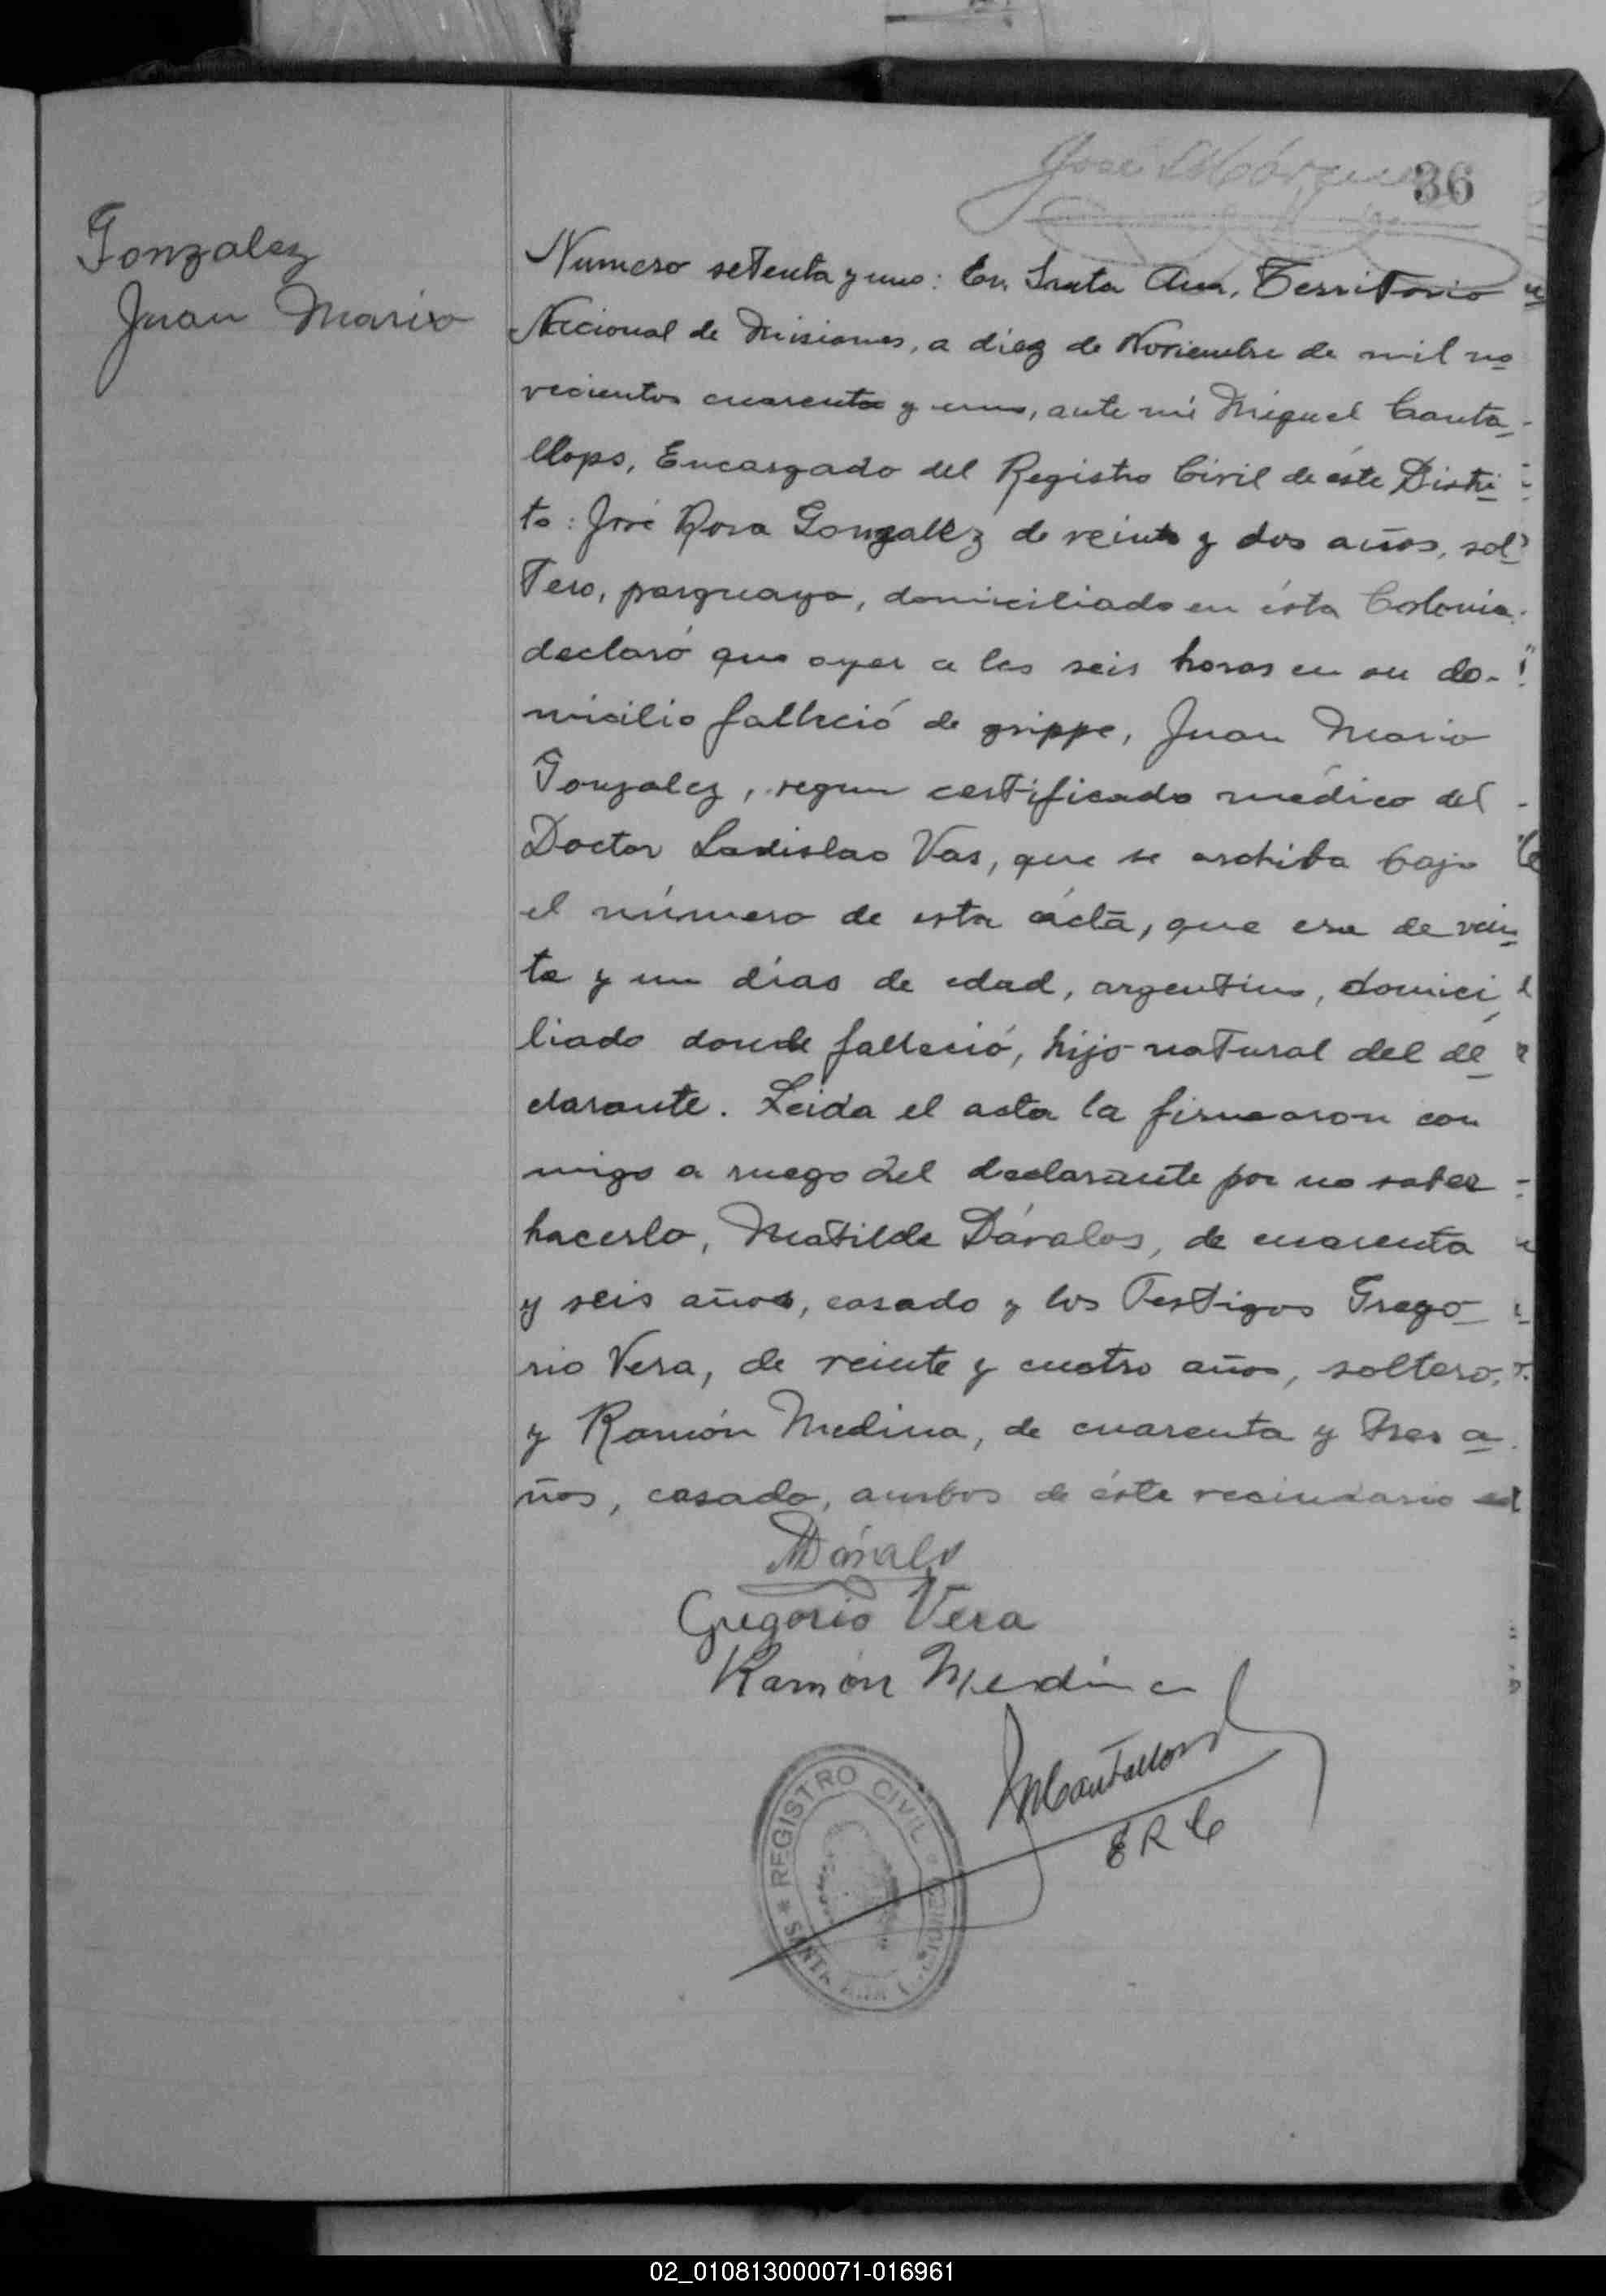 José Márquez
36
Gonzalez
Juan Mario
Numero setenta y uno: En Santa Ana, Territorio
Nacional de Misiones, a diez de Noviembre de mil no
vecientos cuarenta y uno, ante mí Miguel Canta
llops, Encargado del Registro Civil de éste Distri
to: José Rosa Gonzalez de veinte y dos años, sol
tero, paraguayo, domiciliado en ésta Colonia
declaró que ayer a las seis horas en su do-
micilio falleció de grippe, Juan Mario
Gonzalez, segun certificado médico del
Doctor Ladislao Vas, que se archiva bajo
el número de esta ácta, que era de vein
te y un días de edad, argentino, domici
liado donde falleció, hijo natural del de
clarante. Leida el acta la firmaron con
migo a ruego del declarante por no saber
hacerlo, Matilde Dávalos, de cuarenta
y seis años, casado y los Testigos Grego
rio Vera, de veinte y cuatro años, soltero,
y Ramón Medina, de cuarenta y tres a
ños, casado, ambos de éste vecindario
MDávalos
Gregorio Vera
Ramón Medina
MCantallops
E R C
REGISTRO CIVIL
SANTA ANA
02_010813000071-016961